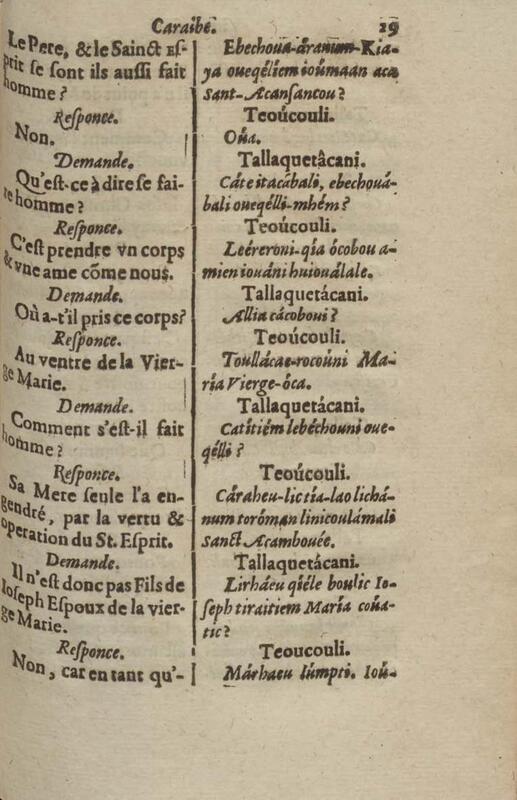 Caraibe. 29
Le Pere, & le Sainct Eſ-
prit ſe ſont ils auſſi fait
homme?
Reſponce.
Non.
Demande.
Qu'eſt-ce à dire ſe fai-
re homme?
Reſponce.
C'eſt prendre vn corps
& vne ame cõme nous.
Demande.
Où a-t'il pris ce corps?
Reſponce.
Au ventre de la Vier-
ge Marie.
Demande.
Comment s'eſt-il fait
homme?
Reſponce.
Sa Mere ſeule l'a en-
gendré, par la vertu &
operation du St. Eſprit.
Demande.
Il n'eſt donc pas Fils de
Ioſeph Eſpoux de la vier-
ge Marie.
Reſponce.
Non, car en tant qu'-
Ebechoua-áranum-Kia-
ya oueqéliem ioúmaan aca
Sant-Acanſancou?
Teoúcouli.
Oúa.
Tallaquetâcani.
Cáte itacábali, ebechouá-
bali oueqélli-mhém?
Teoúcouli.
Leéreroni-qia ócobou a-
mien iouáni huioualale.
Tallaquetácani.
Allia cácoboui?
Teoúcouli.
Toullácae-rocoúni Ma-
ría Vierge-óca.
Tallaquetácani.
Catítiém lebéchouni oue-
qélli?
Teoúcouli.
Cáraheu-lic tía-lao lichá-
num toróman linicoulámali
Sanct Acambouée.
Tallaquetácani.
Lirháeu qiéle boulic Io-
ſeph tiraitiem María coúa-
tic?
Teoucouli.
Márhaeu lúmpti. Ioú-